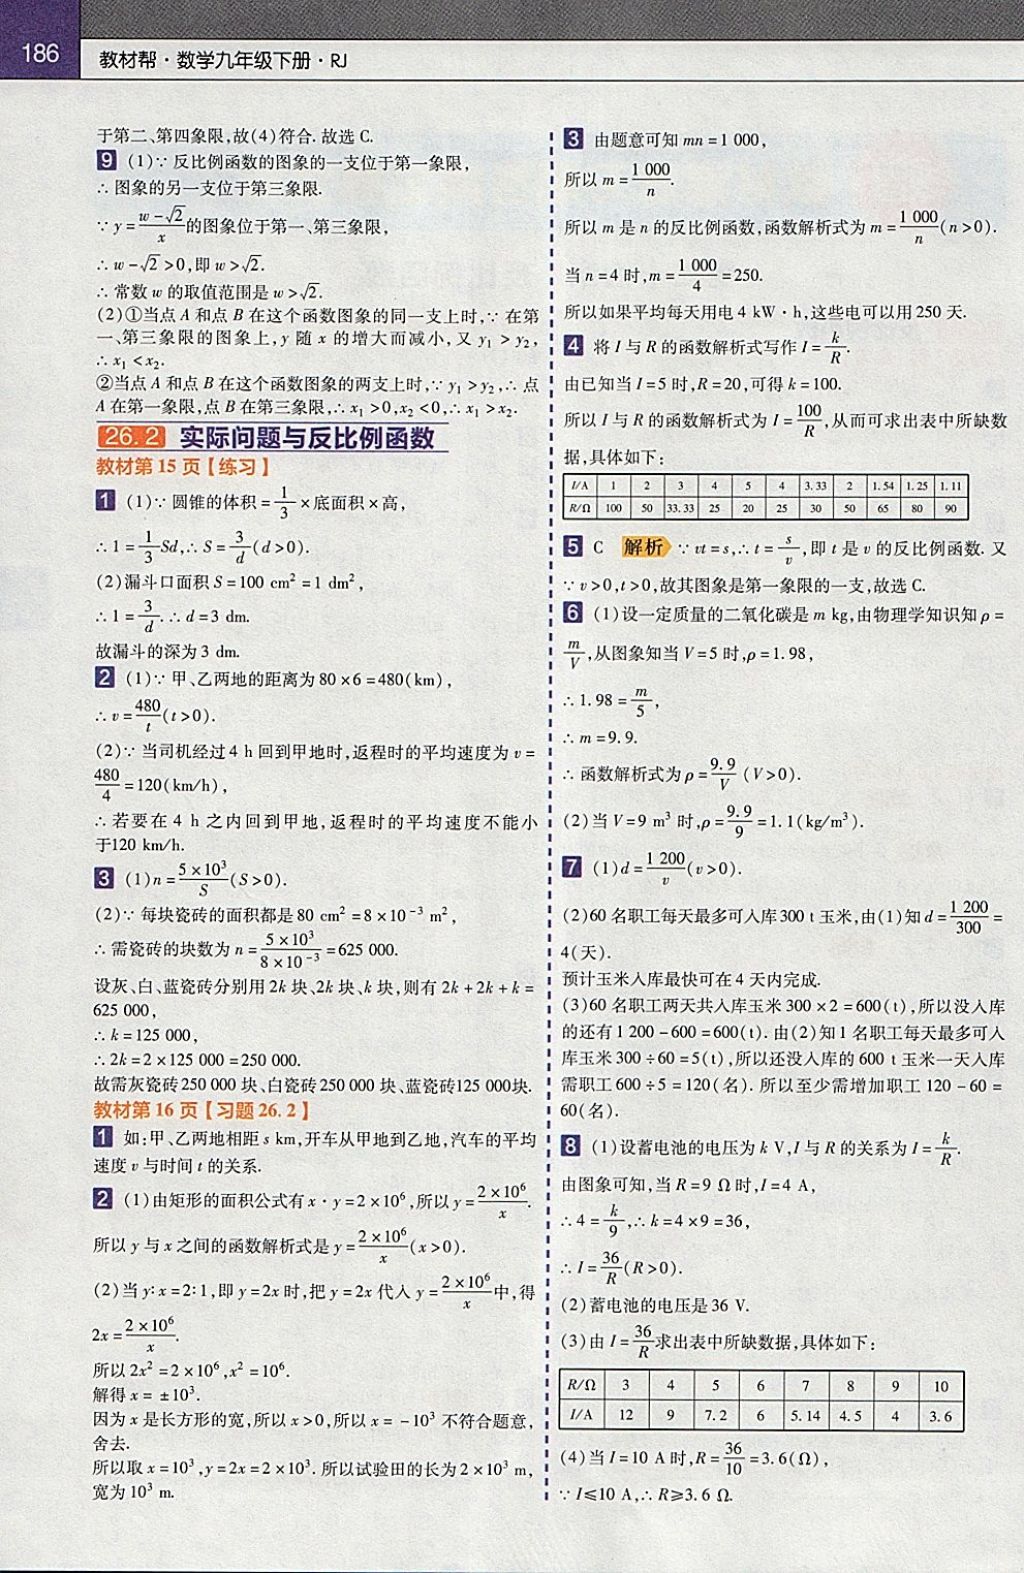 186
教材帮·数学九年级下册·RJ
于第二、第四象限,故(4)符合.故选 C.
9 (1)∵反比例函数的图象的一支位于第一象限,
∴图象的另一支位于第三象限.
∵y=(w-√2)/x的图象位于第一、第三象限,
∴w-√2>0,即w>√2.
∴常数w的取值范围是w>√2.
(2)①当点A和点B在这个函数图象的同一支上时,∵在第
一、第三象限的图象上,y随x的增大而减小,又y₁>y₂,
∴x₁<x₂.
②当点A和点B在这个函数图象的两支上时,∵y₁>y₂,∴点
A在第一象限,点B在第三象限,∴x₁>0,x₂<0,∴x₁>x₂.
26.2 实际问题与反比例函数
教材第15页【练习】
1 (1)∵圆锥的体积=1/3×底面积×高,
∴1=1/3Sd,∴S=3/d(d>0).
(2)漏斗口面积S=100 cm²=1 dm²,
∴1=3/d.∴d=3 dm.
故漏斗的深为3 dm.
2 (1)∵甲、乙两地的距离为80×6=480(km),
∴v=480/t(t>0).
(2)∵当司机经过4 h回到甲地时,返程时的平均速度为v=
480/4=120(km/h),
∴若要在4 h之内回到甲地,返程时的平均速度不能小
于120 km/h.
3 (1)n=5×10³/S(S>0).
(2)∵每块瓷砖的面积都是80 cm²=8×10⁻³ m²,
∴需瓷砖的块数为n=5×10³/8×10⁻³=625 000.
设灰、白、蓝瓷砖分别用2k块、2k块、k块,则有2k+2k+k=
625 000,
∴k=125 000,
∴2k=2×125 000=250 000.
故需灰瓷砖250 000块、白瓷砖250 000块、蓝瓷砖125 000块.
教材第16页【习题26.2】
1 如:甲、乙两地相距s km,开车从甲地到乙地,汽车的平均
速度v与时间t的关系.
2 (1)由矩形的面积公式有x·y=2×10⁶,所以y=2×10⁶/x.
所以y与x之间的函数解析式是y=2×10⁶/x(x>0).
(2)当y∶x=2∶1,即y=2x时,把y=2x代入y=2×10⁶/x中,得
2x=2×10⁶/x.
所以2x²=2×10⁶,x²=10⁶.
解得x=±10³.
因为x是长方形的宽,所以x>0,所以x=-10³不符合题意,
舍去.
所以取x=10³,y=2x=2×10³.所以试验田的长为2×10³ m,
宽为10³ m.
3 由题意可知mn=1 000,
所以m=1 000/n.
所以m是n的反比例函数,函数解析式为m=1 000/n(n>0).
当n=4时,m=1 000/4=250.
所以如果平均每天用电4 kW·h,这些电可以用250天.
4 将I与R的函数解析式写作I=k/R.
由已知当I=5时,R=20,可得k=100.
所以I与R的函数解析式为I=100/R,从而可求出表中所缺数
据,具体如下:
I/A 1 2 3 4 5 4 3.33 2 1.54 1.25 1.11
R/Ω 100 50 33.33 25 20 25 30 50 65 80 90
5 C 解析 ∵vt=s,∴t=s/v,即t是v的反比例函数.又
∵v>0,t>0,故其图象是第一象限的一支,故选C.
6 (1)设一定质量的二氧化碳是m kg,由物理学知识知ρ=
m/V,从图象知当V=5时,ρ=1.98,
∴1.98=m/5,
∴m=9.9.
∴函数解析式为ρ=9.9/V(V>0).
(2)当V=9 m³时,ρ=9.9/9=1.1(kg/m³).
7 (1)d=1 200/v(v>0).
(2)60名职工每天最多可入库300 t玉米,由(1)知d=1 200/300=
4(天).
预计玉米入库最快可在4天内完成.
(3)60名职工两天共入库玉米300×2=600(t),所以没入库
的还有1 200-600=600(t).由(2)知1名职工每天最多可入
库玉米300÷60=5(t),所以还没入库的600 t玉米一天入库
需职工600÷5=120(名).所以至少需增加职工120-60=
60(名).
8 (1)设蓄电池的电压为k V,I与R的关系为I=k/R.
由图象可知,当R=9 Ω时,I=4 A,
∴4=k/9,∴k=4×9=36,
∴I=36/R(R>0).
(2)蓄电池的电压是36 V.
(3)由I=36/R求出表中所缺数据,具体如下:
R/Ω 3 4 5 6 7 8 9 10
I/A 12 9 7.2 6 5.14 4.5 4 3.6
(4)当I=10 A时,R=36/10=3.6(Ω),
∵I≤10 A,∴R≥3.6 Ω.